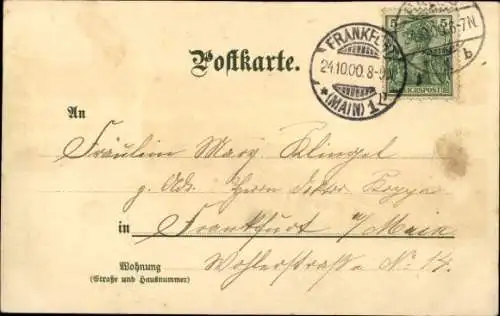 Postkarte.
5
REICHSPOST
FRANKFURT
24.10.00.8-9N
* (MAIN) 1
6-7N
b
An
Fräulein Marg. Klingel
g. Adr. Herrn
in Frankfurt a/Main
Wohnung
(Straße und Hausnummer)
Wohlerstraße No 14.